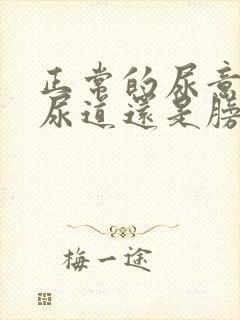 正常的尿意
尿道還是膀
梅一途